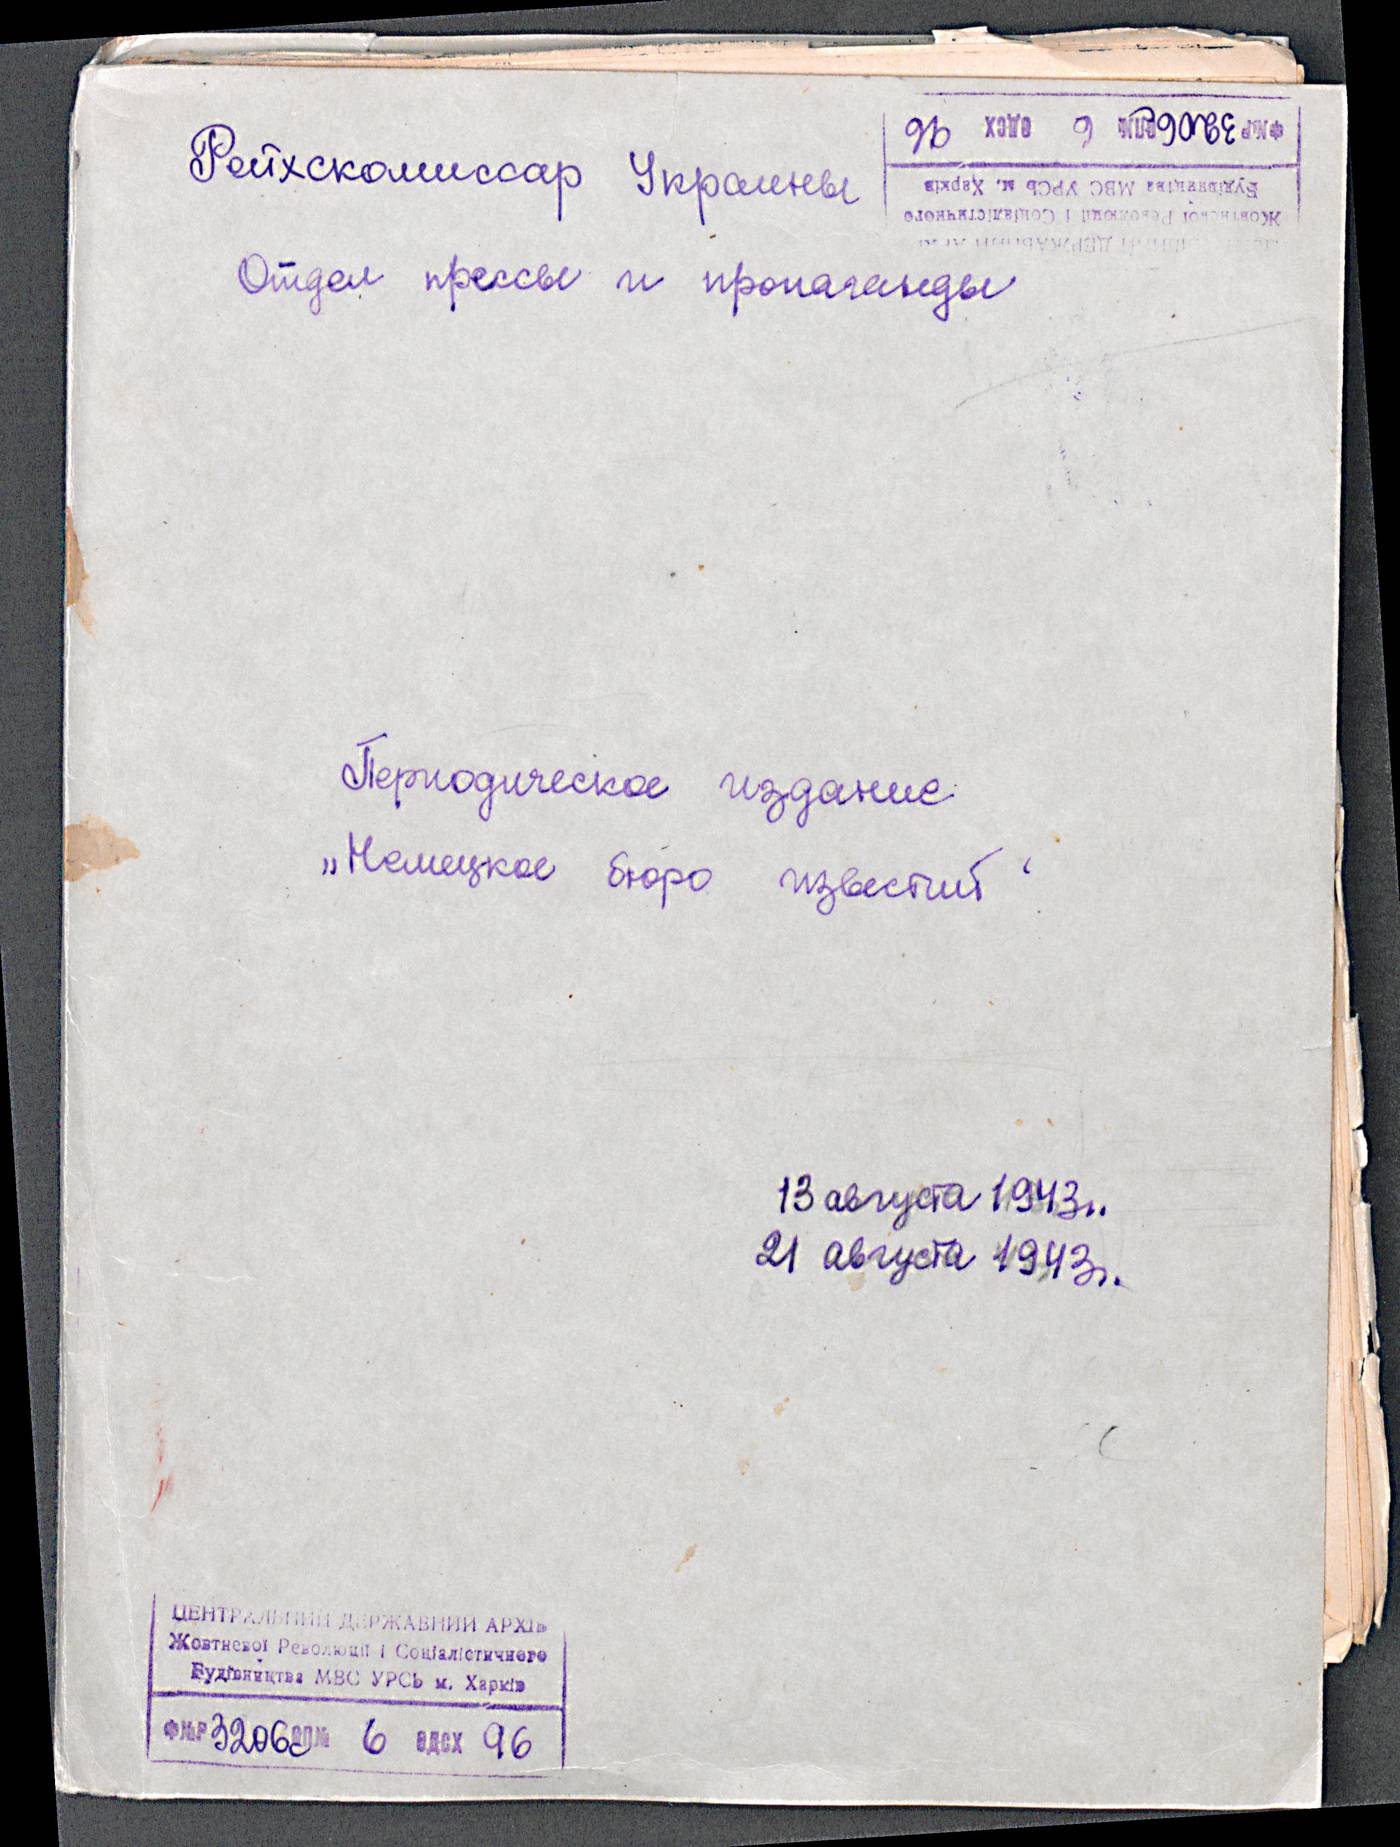 Рейхскомиссар Украины
Ф№Р 3206с ОП№ 6 ОДСХ 96
Жовтневої Революції і Соціалістичного
Будівництва МВС УРСЬ м. Харків
Отдел прессы и пропаганды
Периодическое издание
„Немецкое бюро известий“
13 августа 1943г.
21 августа 1943г.
ЦЕНТРАЛЬНИЙ ДЕРЖАВНИЙ АРХІВ
Жовтневої Революції і Соціалістичного
Будівництва МВС УРСЬ м. Харків
Ф№Р 3206с ОП№ 6 ОДСХ 96